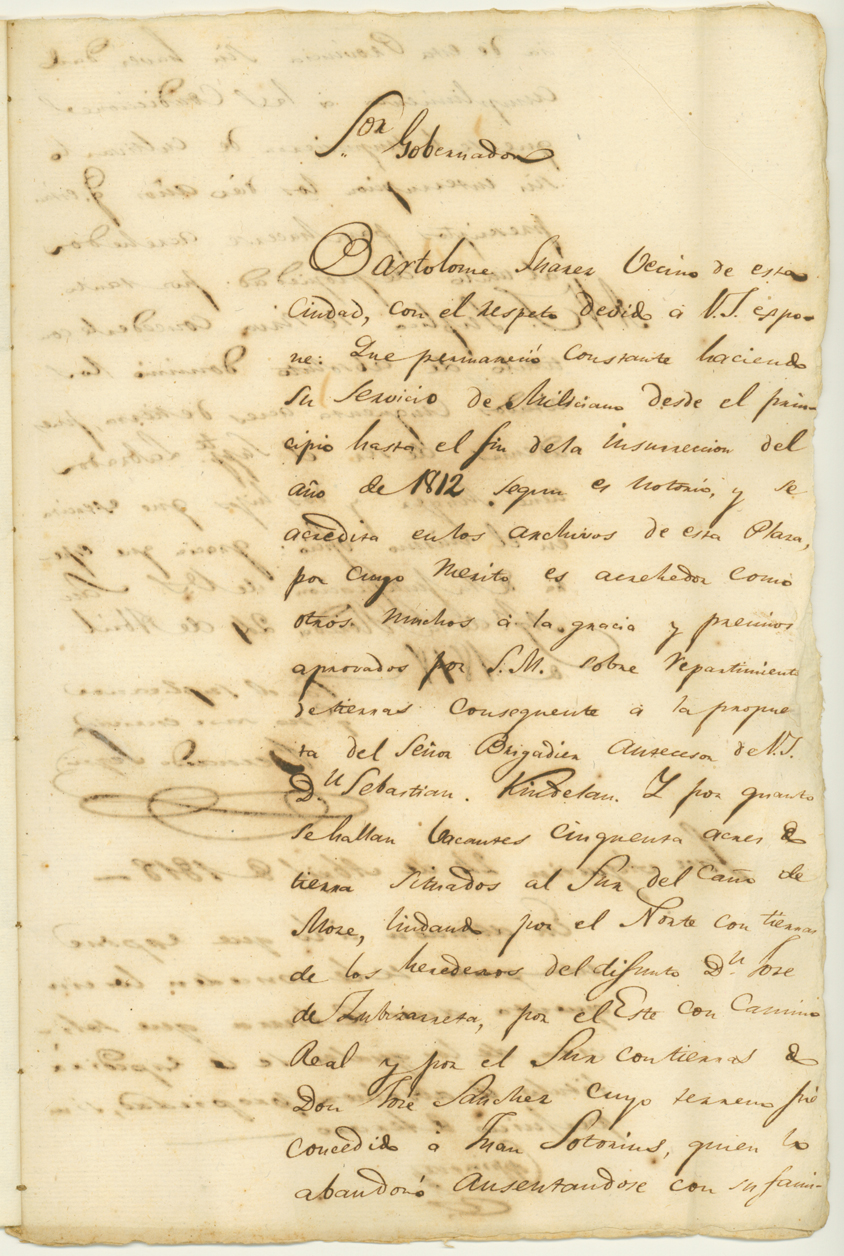 Sor. Gobernador
Bartolome Suarez Vecino de esta
Ciudad, con el respeto devido á V.S. expo-
ne: Que permanenó constante haciendo
su servicio de Miliciano desde el prin-
cipio hasta el fin dela insurreccion del
año de 1812 segun es notorio, y se
acredita en los archivos de esta Plaza,
por cuyo merito es acrehedor como
otros muchos á la gracia y premios
aprovados por S.M. sobre repartimiento
de tierras consequente á la propue
ta del Señor Brigadier antecesor de V.S.
Dn Sebastian. Kindelan. Y por quanto
se hallan vacantes cinquenta acres de
tierra situados al Sur del Caño de
Mose, lindando por el Norte con tierras
de los herederos del difunto Dn Jose
de Zubizarreta, por el Este con Camino
Real y por el Sur con tierras de
Don José Sanchez cuyo terreno fué
concedido á Juan Sotorius, quien lo
abandonó ausentandose con su fami-